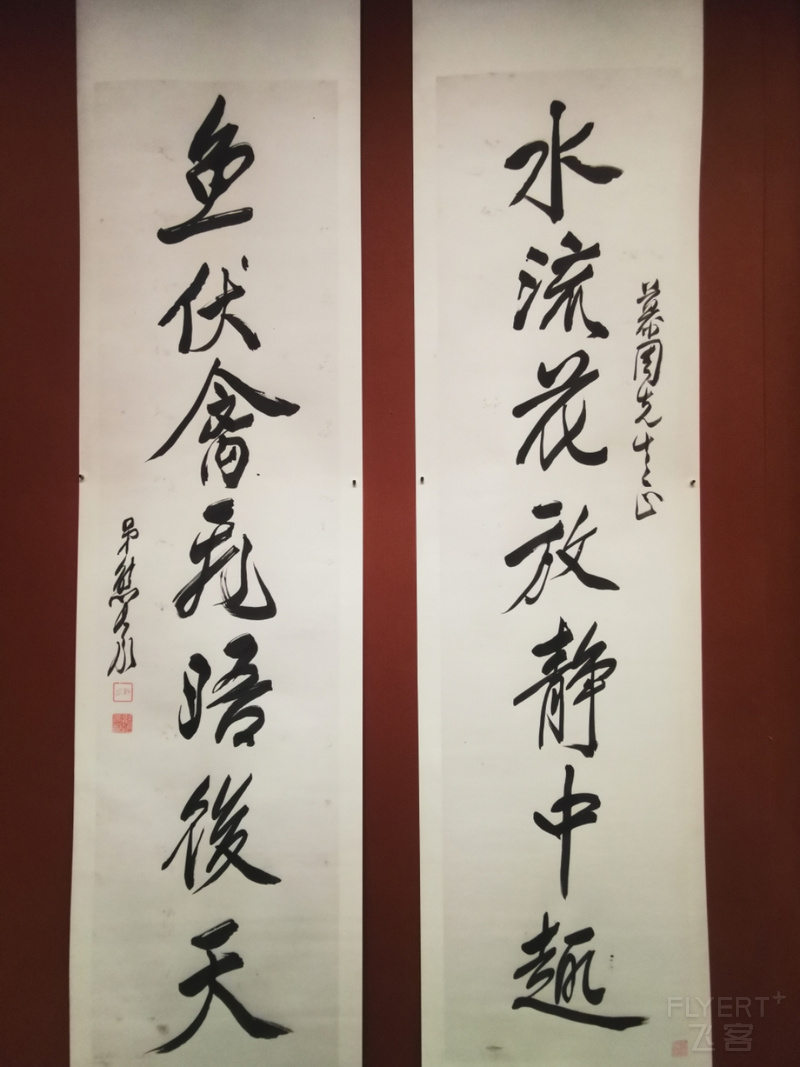 水流花放靜中趣
慕周先生正
鱼伏禽飛晤後天
弟熊
FLYERT+
飞客